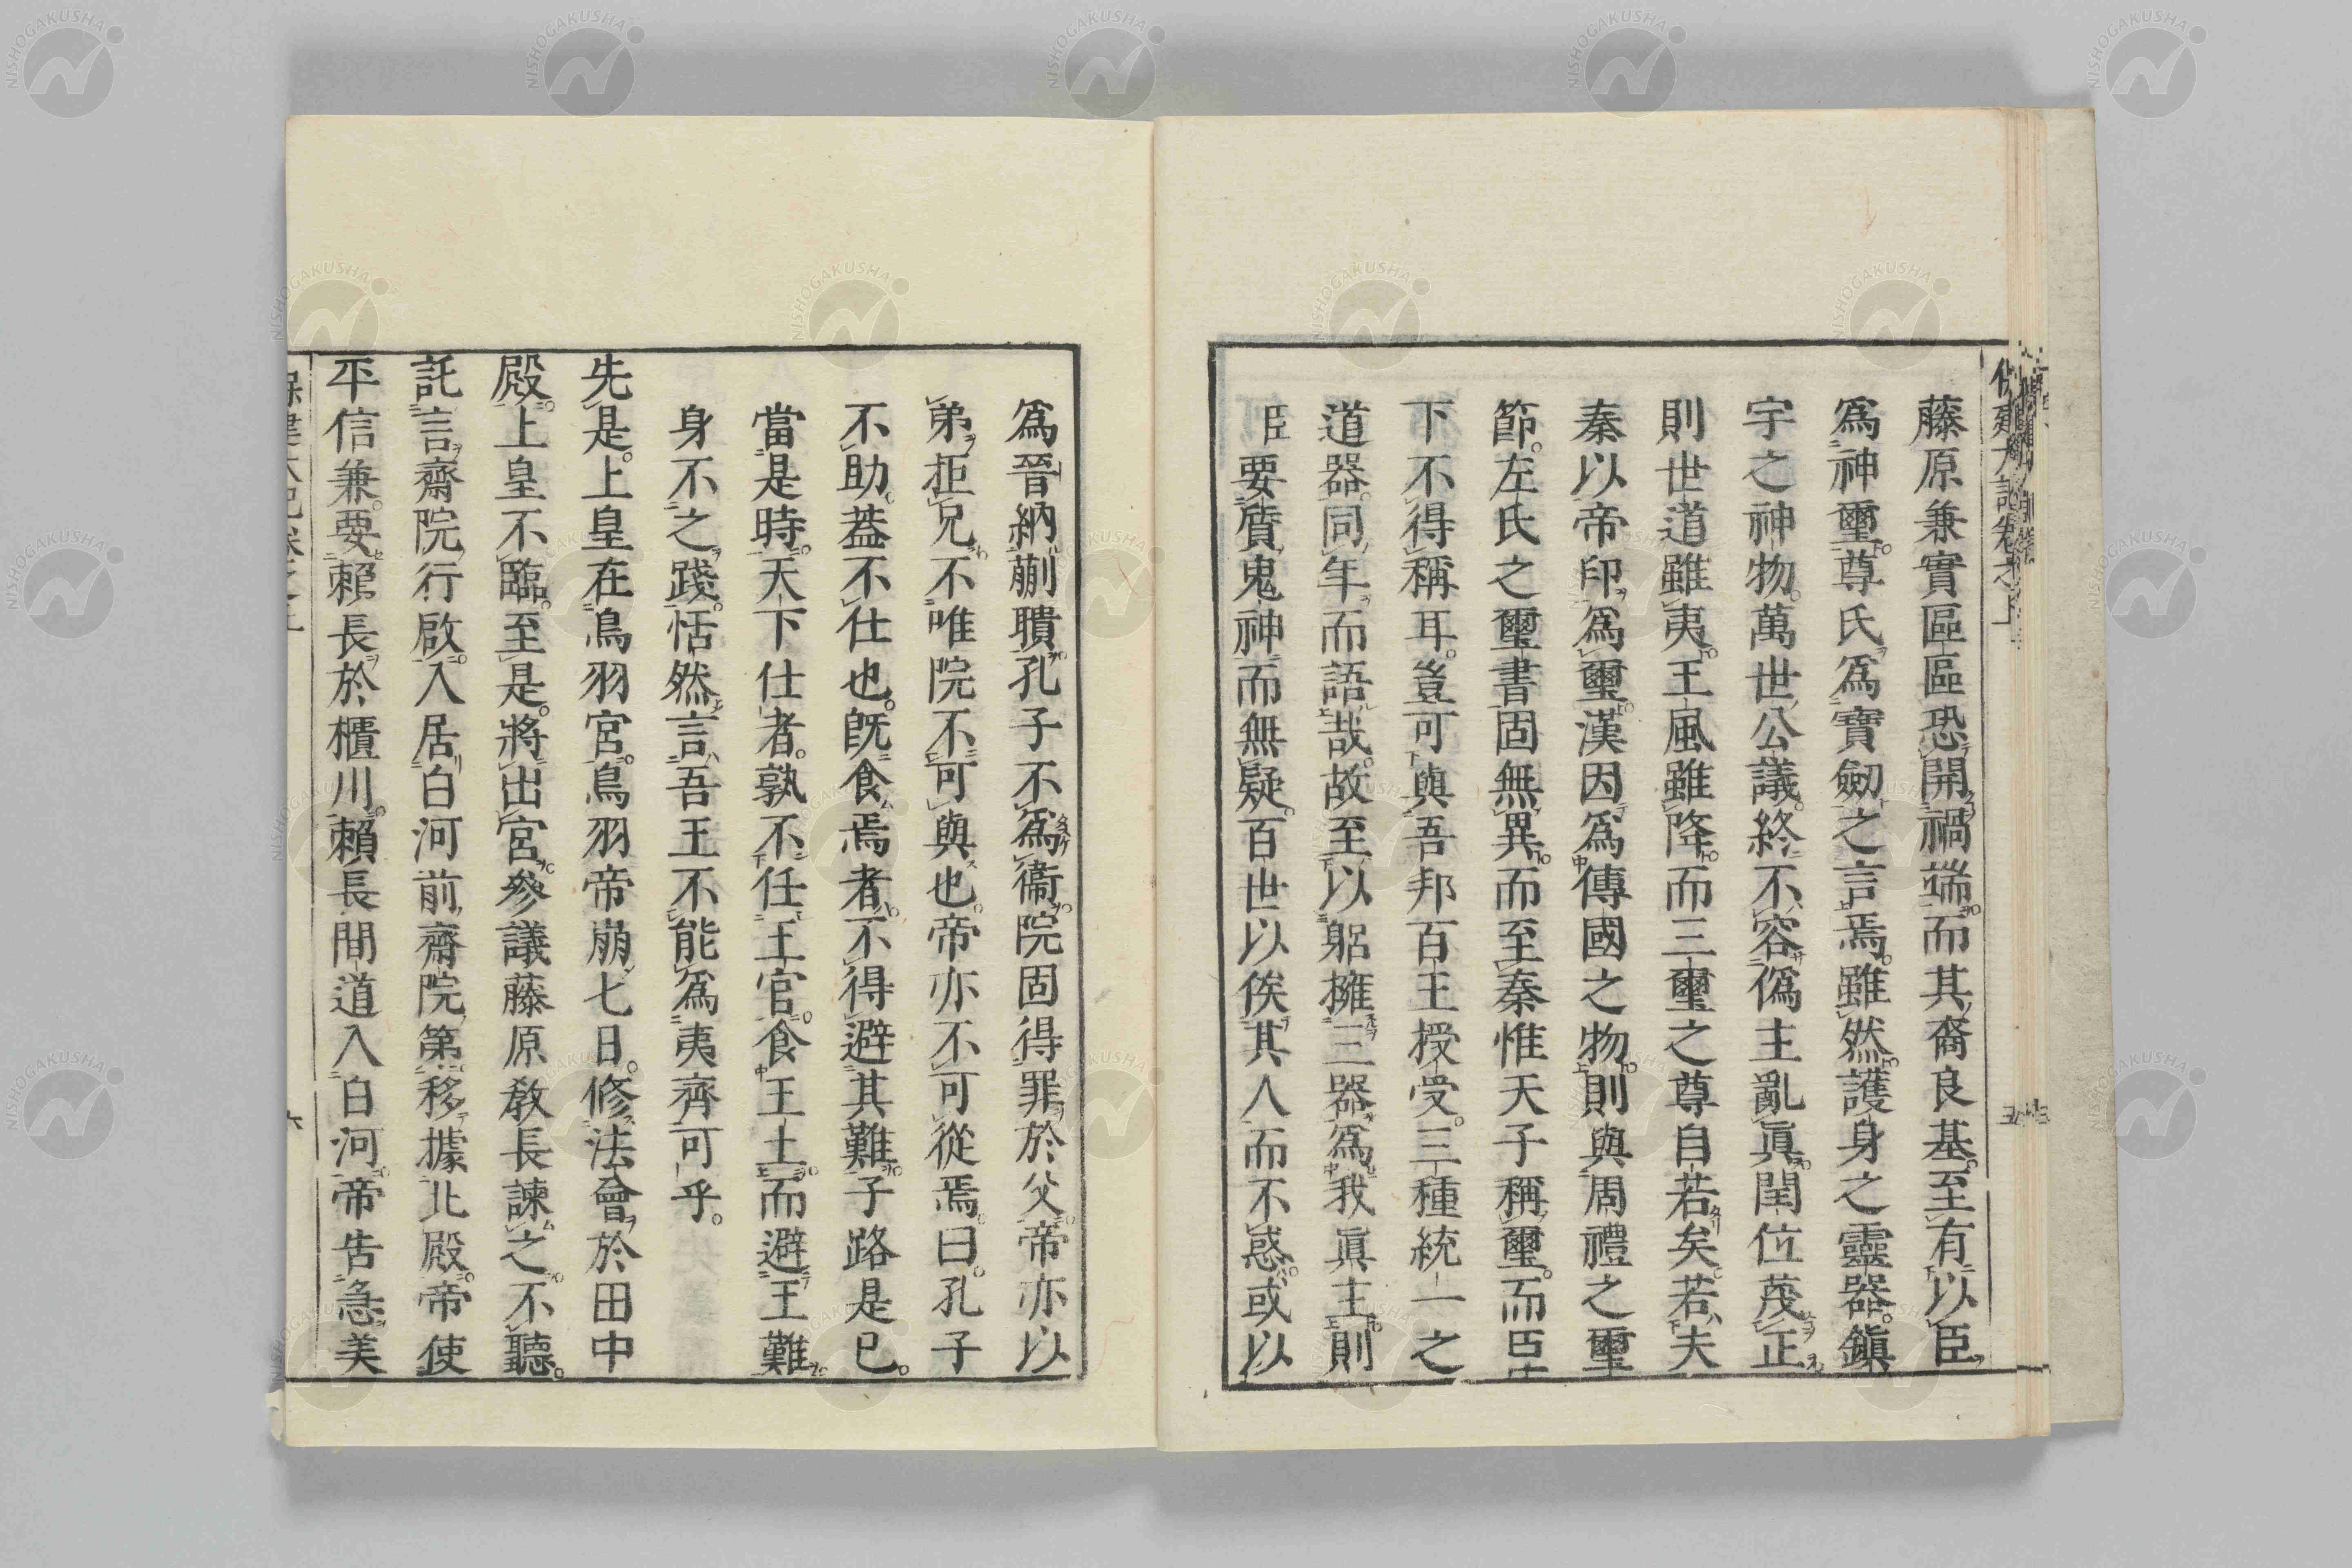 藤原兼實區區恐開禍端而其裔良基至有以臣
爲神璽。尊氏爲寶劒之言焉。雖然護身之靈器。鎭
宇之神物。萬世公議。終不容僞主亂眞閏位茂正。
則世道雖夷。王風雖降。而三璽之尊自若矣。若夫
秦以帝印爲璽。漢因爲傳國之物。則與周禮之璽
節。左氏之璽書固無異。而至秦惟天子稱璽。而臣
下不得稱耳。豈可與吾邦百王授受。三種統一之
道器。同年而語哉。故至以躬擁三器爲我眞主。則
臣要質鬼神而無疑。百世以俟其人而不惑。或以
爲晉納蒯聵孔子不爲衞院固得罪於父。帝亦以
弟拒兄。不唯院不可與也。帝亦不可從焉。曰。孔子
不助。葢不仕也。旣食焉者。不得避其難。子路是已。
當是時。天下仕者。孰不任王官。食王土。而避王難。
身不之踐。恬然言。吾王不能爲夷齊可乎。
先是。上皇在鳥羽宮。鳥羽帝崩七日。修法會於田中
殿。上皇不臨。至是。將出宮。參議藤原敎長諫之。不聽。
託言齋院行啟。入居白河前齋院第。移據北殿。帝使
平信兼。要賴長於櫃川。賴長間道入白河。帝告急美
保建大記卷之上
六
NISHOGAKUSHA